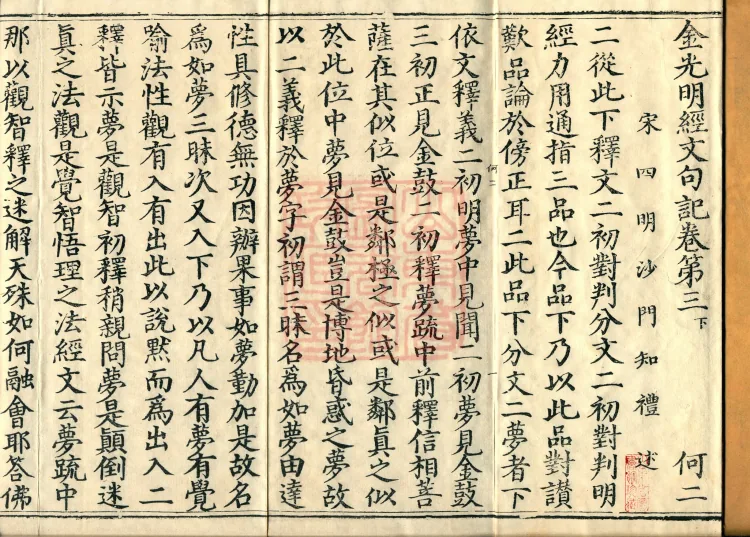 金光明經文句記卷第三下 何二
宋四明沙門知禮述
二從此下釋文二初對判分文二初對判明
經力用通指三品也今品下乃以此品對讚
歎品論於傍正耳二此品下分文二夢者下
依文釋義二初明夢中見聞二初夢見金鼓
三初正見金鼓二初釋夢疏中前釋信相菩
薩在其似位或是鄰極之似或是鄰真之似
於此位中夢見金鼓豈是博地昏惑之夢故
以二義釋於夢字初謂三昧名為如夢由達
性具修德無功因辦果事如夢勤加是故名
為如夢三昧次又入下乃以凡人有夢有覺
喻法性觀有入有出此以說默而為出入二
釋皆示夢是觀智初釋稍親問夢是顛倒迷
真之法觀是覺智悟理之法經文云夢疏中
那以觀智釋之迷解天殊如何融會耶答佛
何二
一